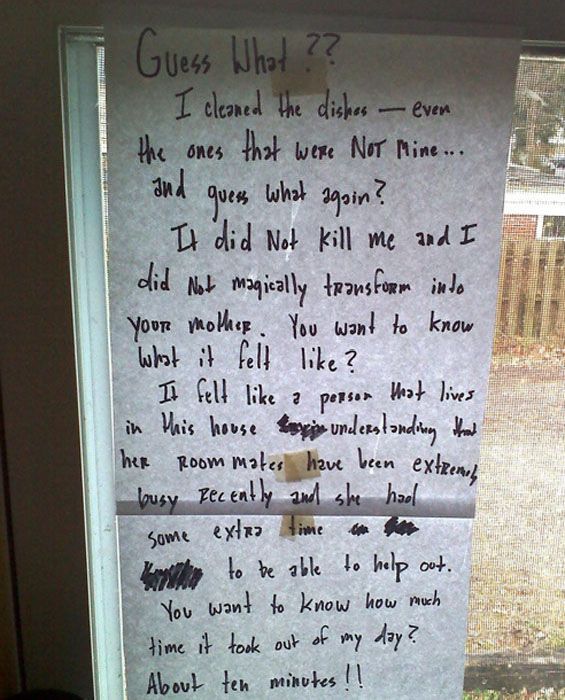 Guess What ??
I cleaned the dishes — even
the ones that were NOT mine...
and guess what again?
It did Not kill me and I
did Not magically transform into
your mother. You want to know
what it felt like?
It felt like a person that lives
in this house understanding that
her roommates have been extremely
busy recently and she had
some extra time
to be able to help out.
You want to know how much
time it took out of my day?
About ten minutes!!